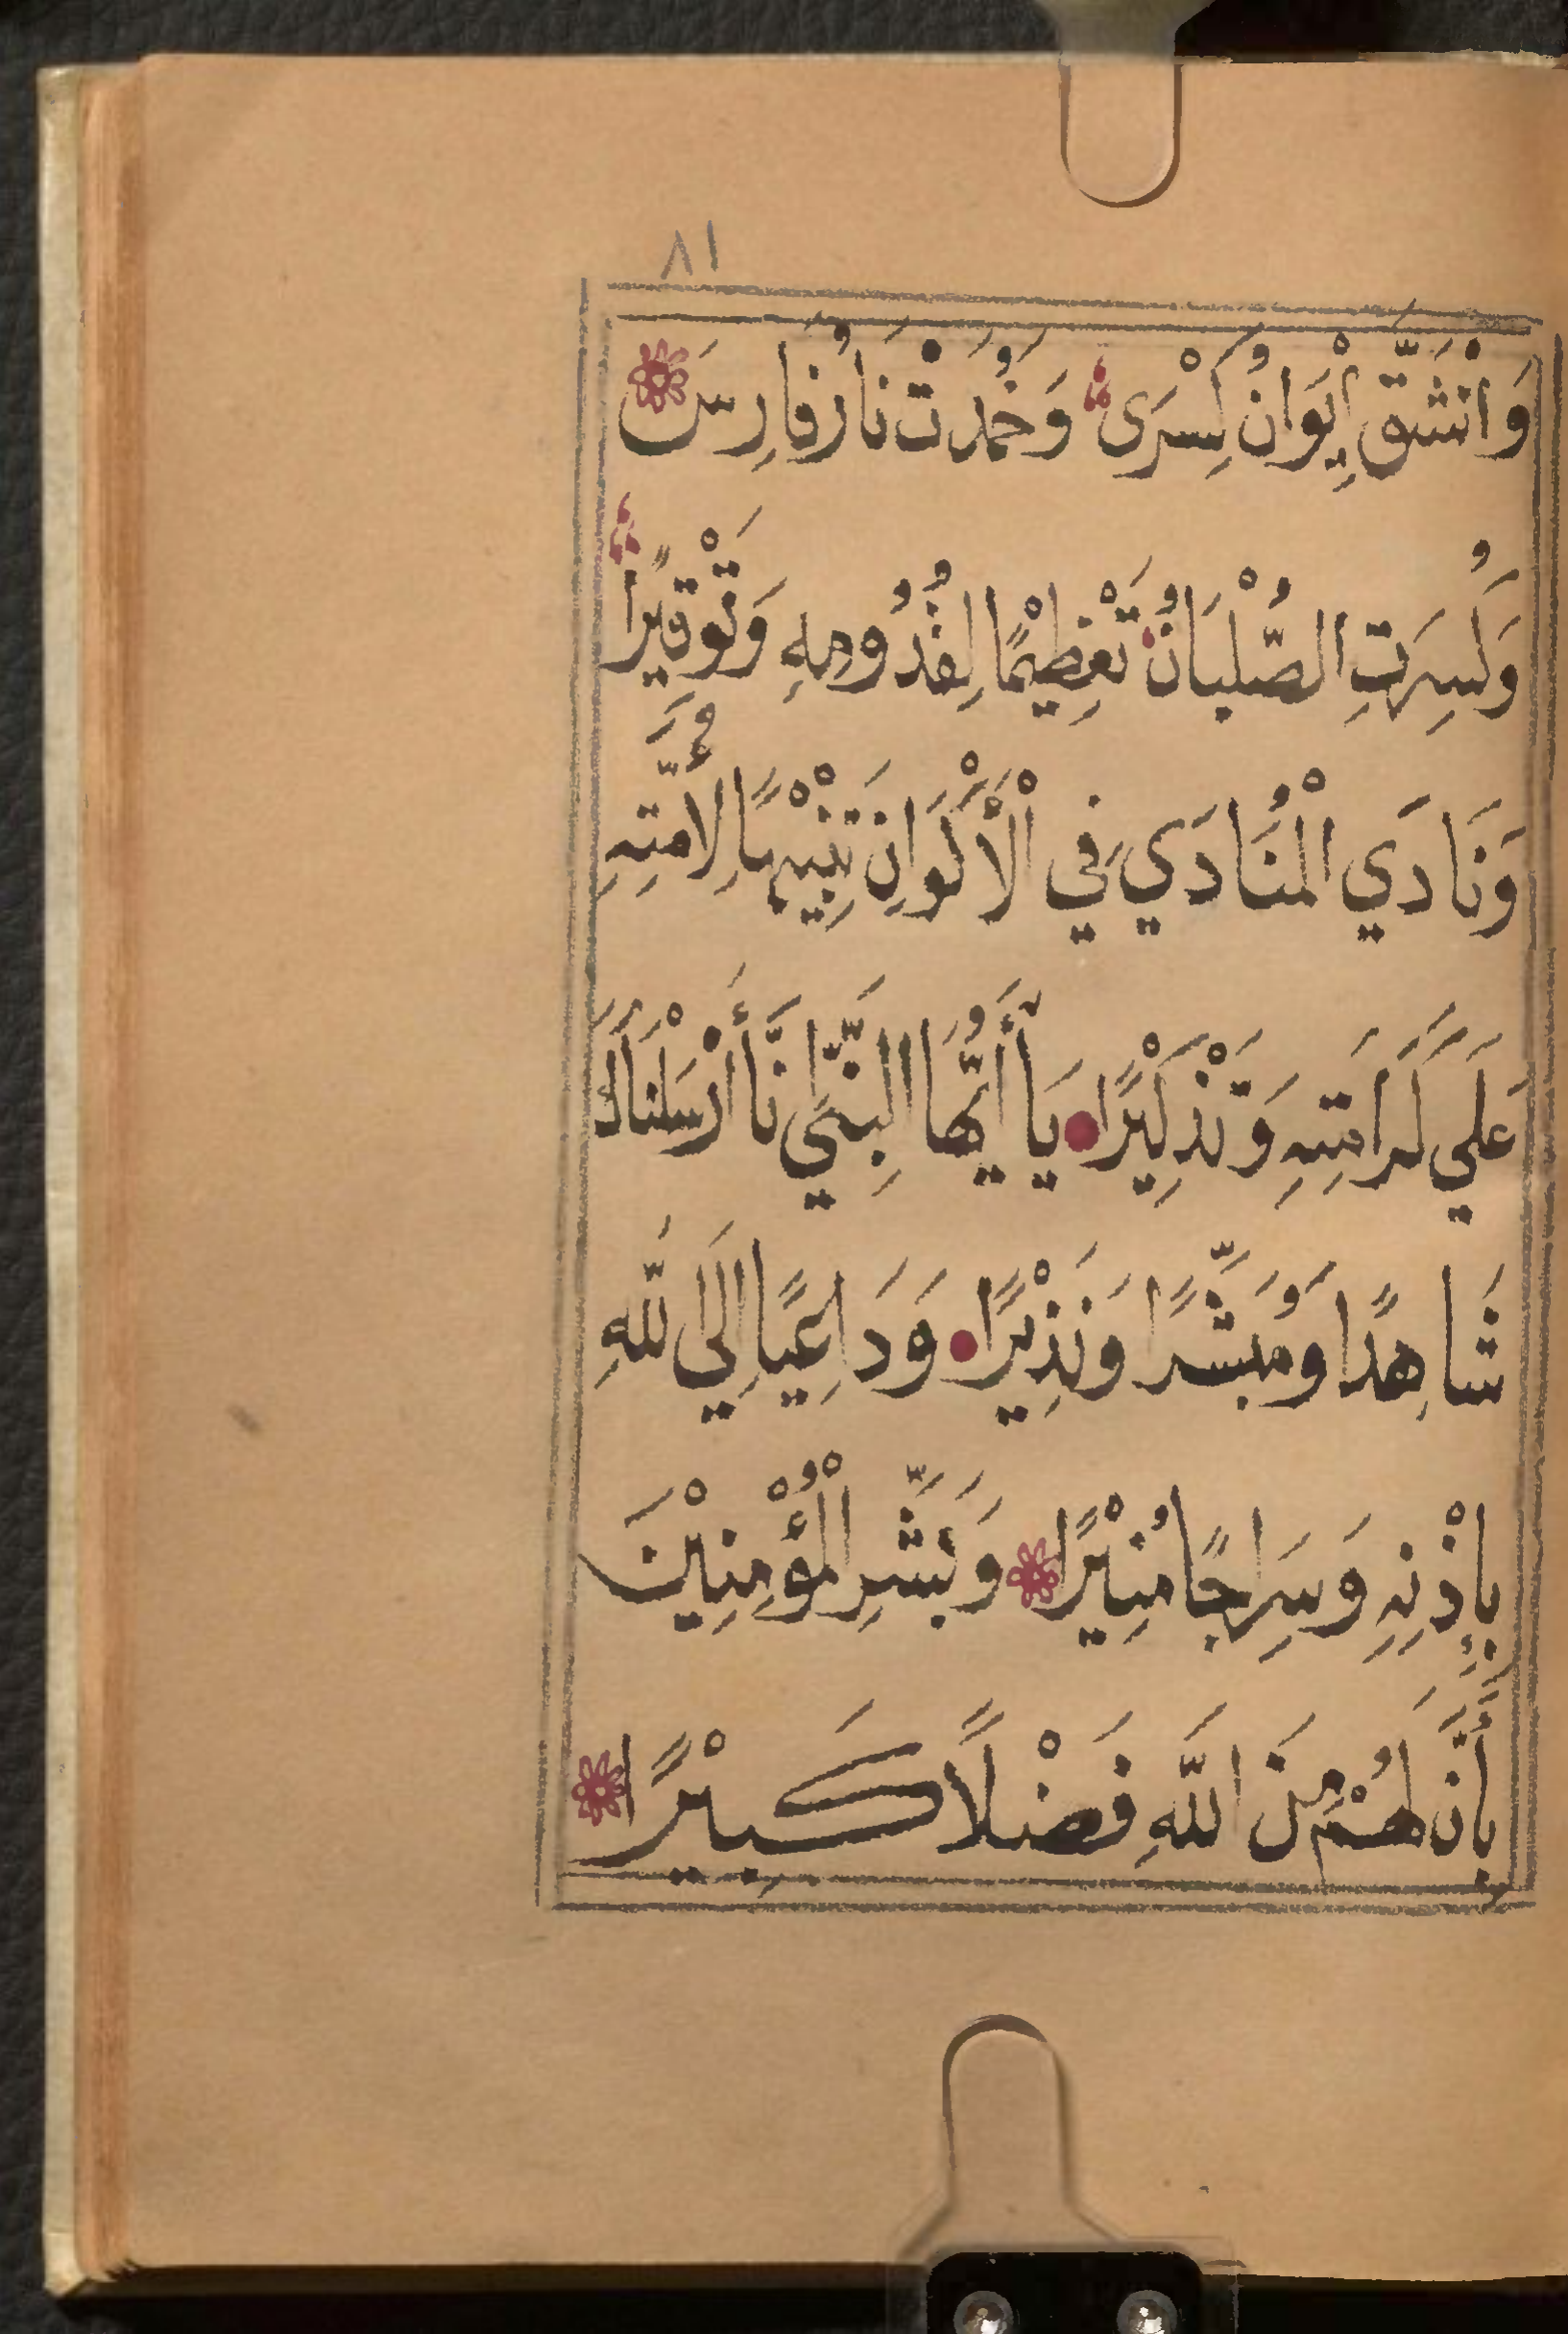 ٨١
وَانْشَقَّ إِيْوَانُ كِسْرَى وَخَمُدَتْ نَارُ فَارِسَ
وَكُسِرَتِ الصُّلْبَانُ تَعْظِيْمًا لِقُدُومِهِ وَتَوْقِيْرًا
وَنَادَي الْمُنَادَي فِي الْأَكْوَانِ تَنْبِيْهًا لِأُمَّتِهِ
عَلَي كَرَامَتِهِ وَتَذْكِيْرًا يَا أَيُّهَا النَّبِيُّ إِنَّا أَرْسَلْنَاكَ
شَاهِدًا وَمُبَشِّرًا وَنَذِيْرًا وَدَاعِيًا إِلَي اللَّهِ
بِإِذْنِهِ وَسِرَاجًا مُنِيْرًا وَبَشِّرِ الْمُؤْمِنِيْنَ
بِأَنَّ لَهُمْ مِنَ اللَّهِ فَضْلًا كَبِيْرًا